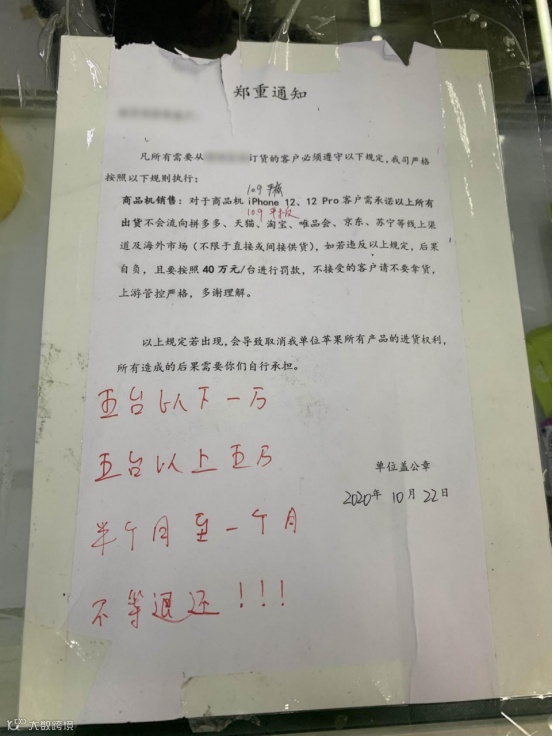 郑重通知
凡所有需要从订货的客户必须遵守以下规定，我司严格
按照以下规则执行：
10.9平板
商品机销售：对于商品机 iPhone 12、12 Pro 客户需承诺以上所有
10.9 平板
出货不会流向拼多多、天猫、淘宝、唯品会、京东、苏宁等线上渠
道及海外市场（不限于直接或间接供货），如若违反以上规定，后果
自负，且要按照 40 万元/台进行罚款，不接受的客户请不要拿货，
上游管控严格，多谢理解。
以上规定若出现，会导致取消我单位苹果所有产品的进货权利，
所有造成的后果需要你们自行承担。
五台以下一万
五台以上五万
单位盖公章
2020年 10月 22日
半个月至一个月
不等退还！！！
大数跨境